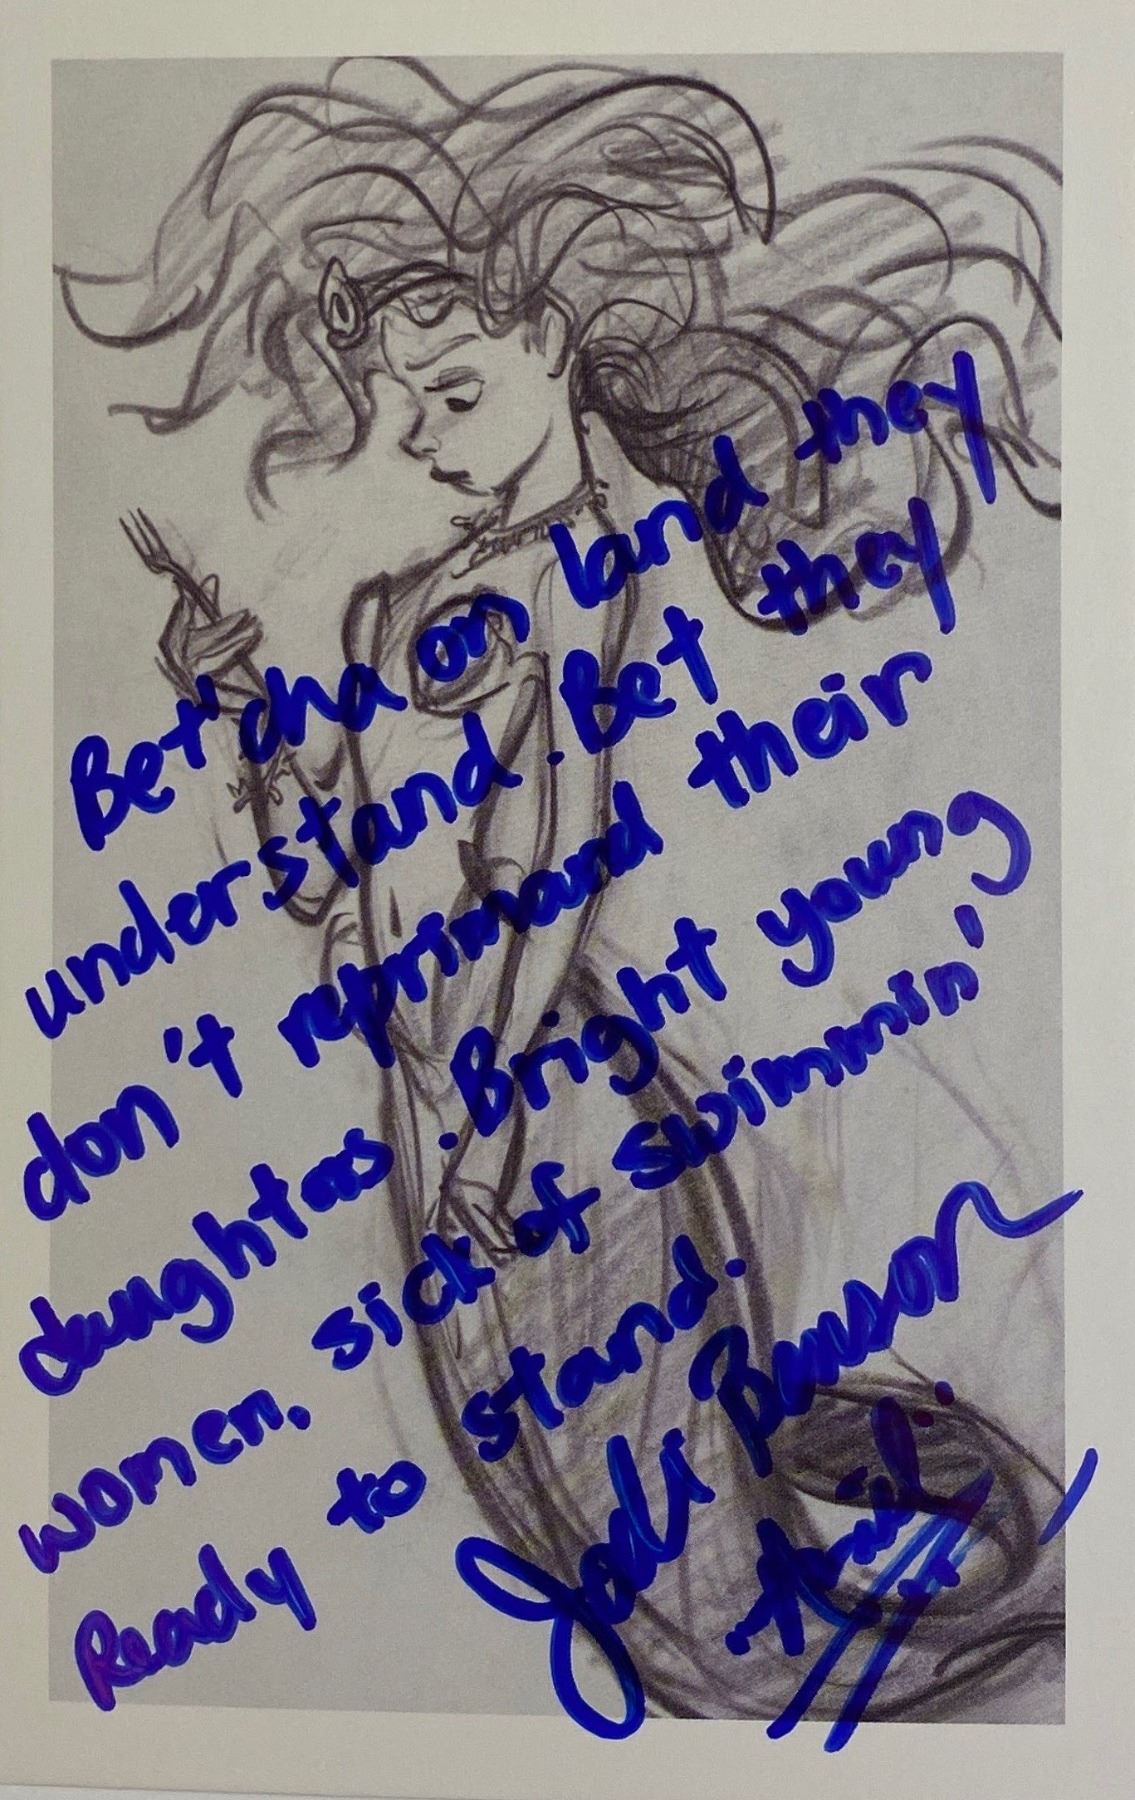 Bet'cha on land they
understand. Bet they
don't reprimand their
daughters. Bright young
women, sick of swimmin'
Ready to stand.
Jodi Benson
"Ariel"